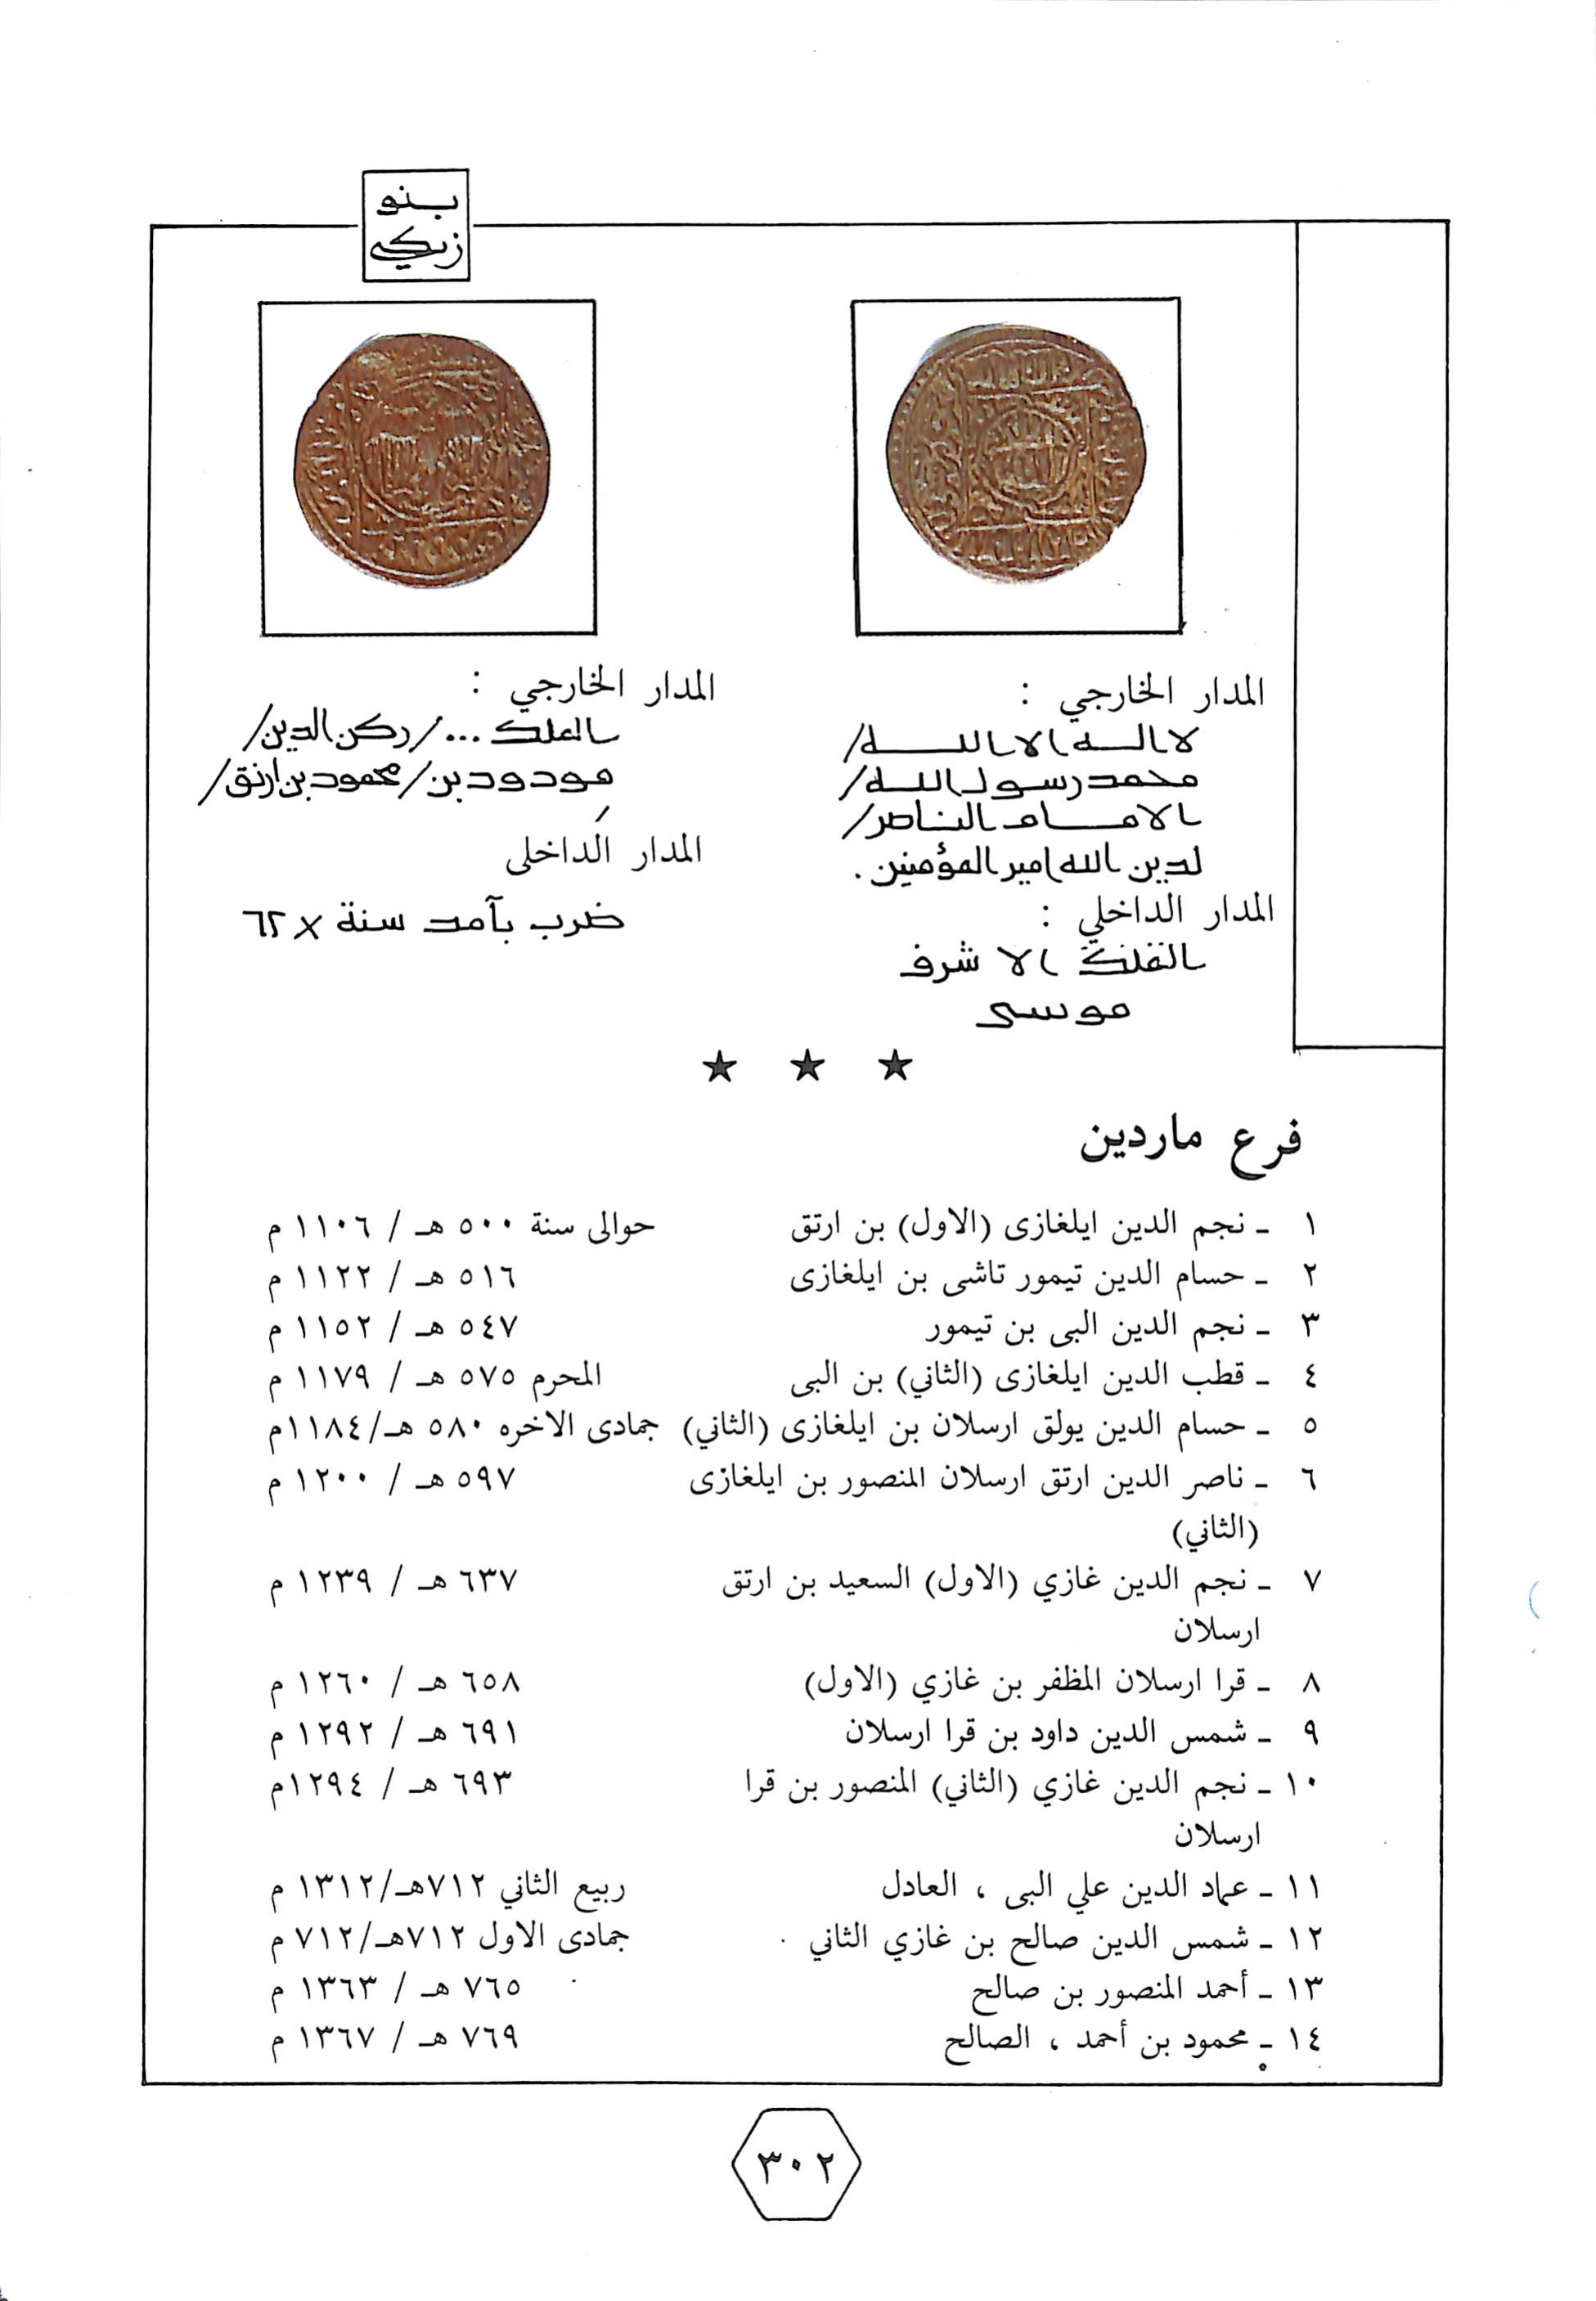 بنو
زنكي
المدار الخارجي :
لا اله الا الله/
محمد رسول الله/
الامام الناصر/
لدين الله امير المؤمنين.
المدار الداخلي :
الملك الا شرف
موسى
المدار الخارجي :
الملك .../ركن الدين/
مودود بن/محمود بن ارتق/
المدار الداخلى
ضرب بآمد سنة x ٦٢
★ ★ ★
فرع ماردين
١ ـ نجم الدين ايلغازى (الاول) بن ارتق حوالى سنة ٥٠٠ هـ / ١١٠٦ م
٢ ـ حسام الدين تيمور تاشى بن ايلغازى ٥١٦ هـ / ١١٢٢ م
٣ ـ نجم الدين البى بن تيمور ٥٤٧ هـ / ١١٥٢ م
٤ ـ قطب الدين ايلغازى (الثاني) بن البى المحرم ٥٧٥ هـ / ١١٧٩ م
٥ ـ حسام الدين يولق ارسلان بن ايلغازى (الثاني) جمادى الاخره ٥٨٠ هـ/١١٨٤م
٦ ـ ناصر الدين ارتق ارسلان المنصور بن ايلغازى ٥٩٧ هـ / ١٢٠٠ م
(الثاني)
٧ ـ نجم الدين غازي (الاول) السعيد بن ارتق ٦٣٧ هـ / ١٢٣٩ م
ارسلان
٨ ـ قرا ارسلان المظفر بن غازي (الاول) ٦٥٨ هـ / ١٢٦٠ م
٩ ـ شمس الدين داود بن قرا ارسلان ٦٩١ هـ / ١٢٩٢ م
١٠ ـ نجم الدين غازي (الثاني) المنصور بن قرا ٦٩٣ هـ / ١٢٩٤م
ارسلان
١١ ـ عماد الدين علي البى ، العادل ربيع الثاني ٧١٢هـ/١٣١٢ م
١٢ ـ شمس الدين صالح بن غازي الثاني جمادى الاول ٧١٢هـ/٧١٢ م
١٣ ـ أحمد المنصور بن صالح ٧٦٥ هـ / ١٣٦٣ م
١٤ ـ محمود بن أحمد ، الصالح ٧٦٩ هـ / ١٣٦٧ م
٣٠٢